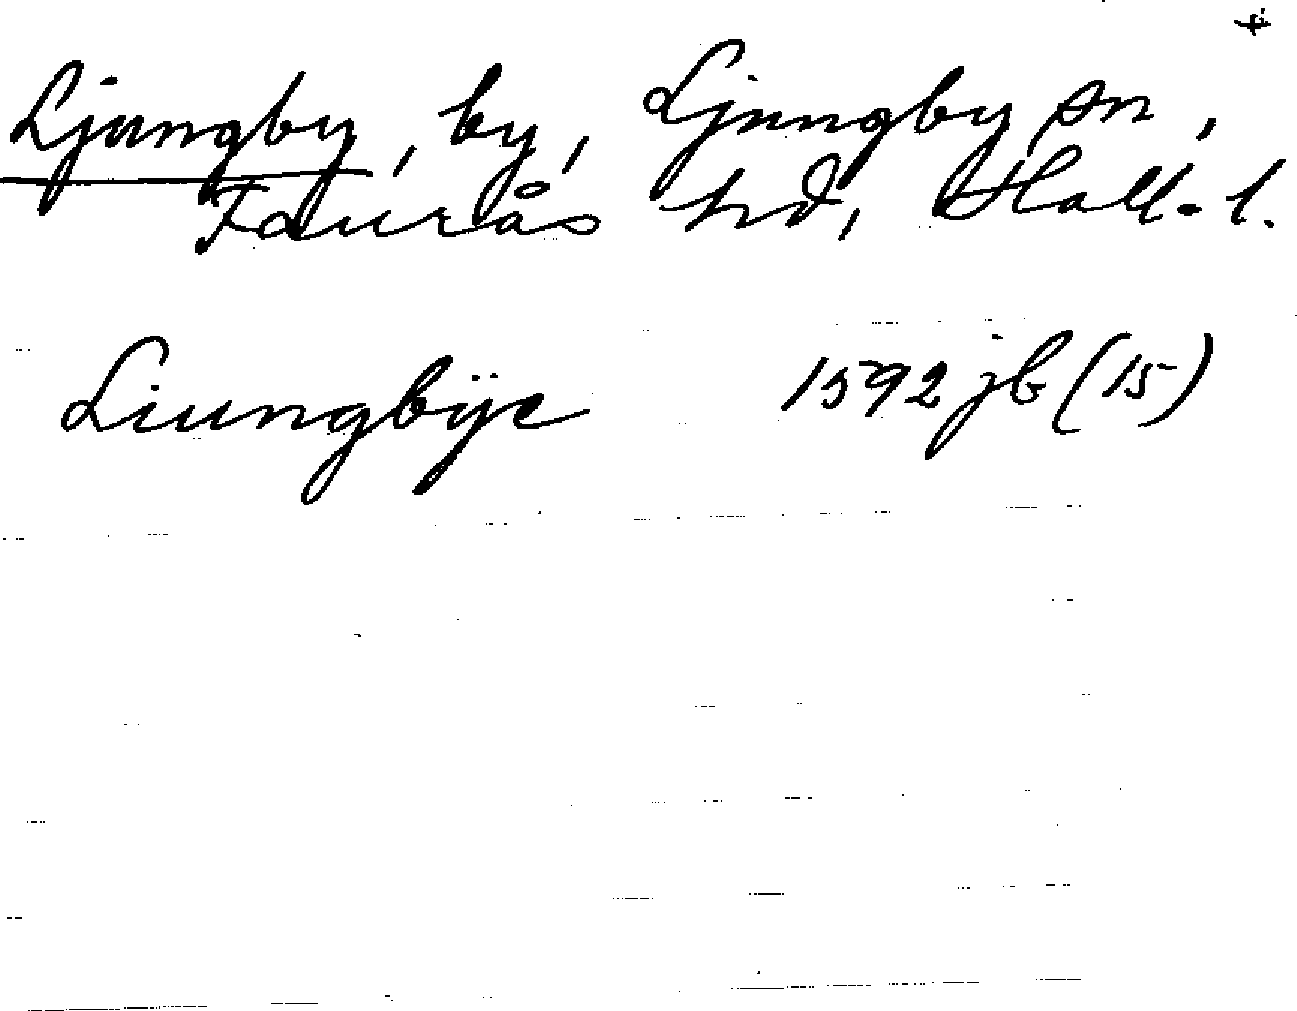 Ljungby, by, Ljungby sn,
Faurås hd, Hall. l.
Liungbÿe 1592 jb (15)